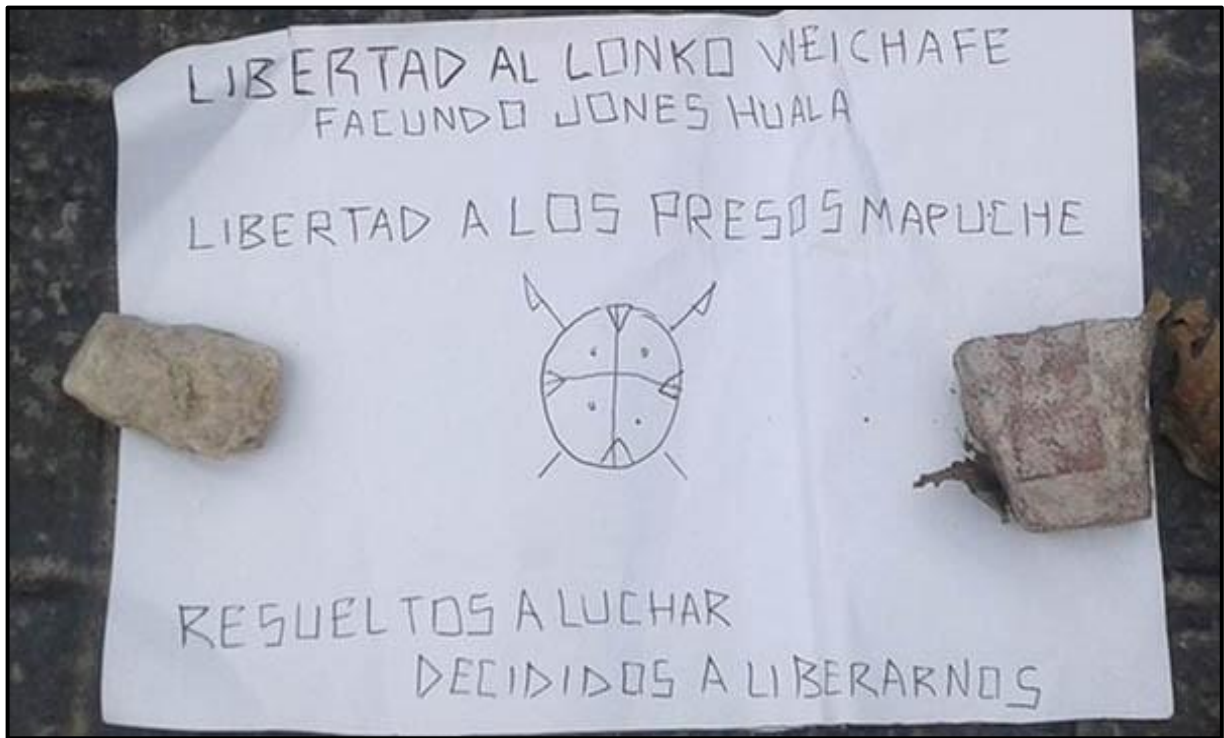 LIBERTAD AL LONKO WEICHAFE
FACUNDO JONES HUALA
LIBERTAD A LOS PRESOS MAPUCHE
RESUELTOS A LUCHAR
DECIDIDOS A LIBERARNOS